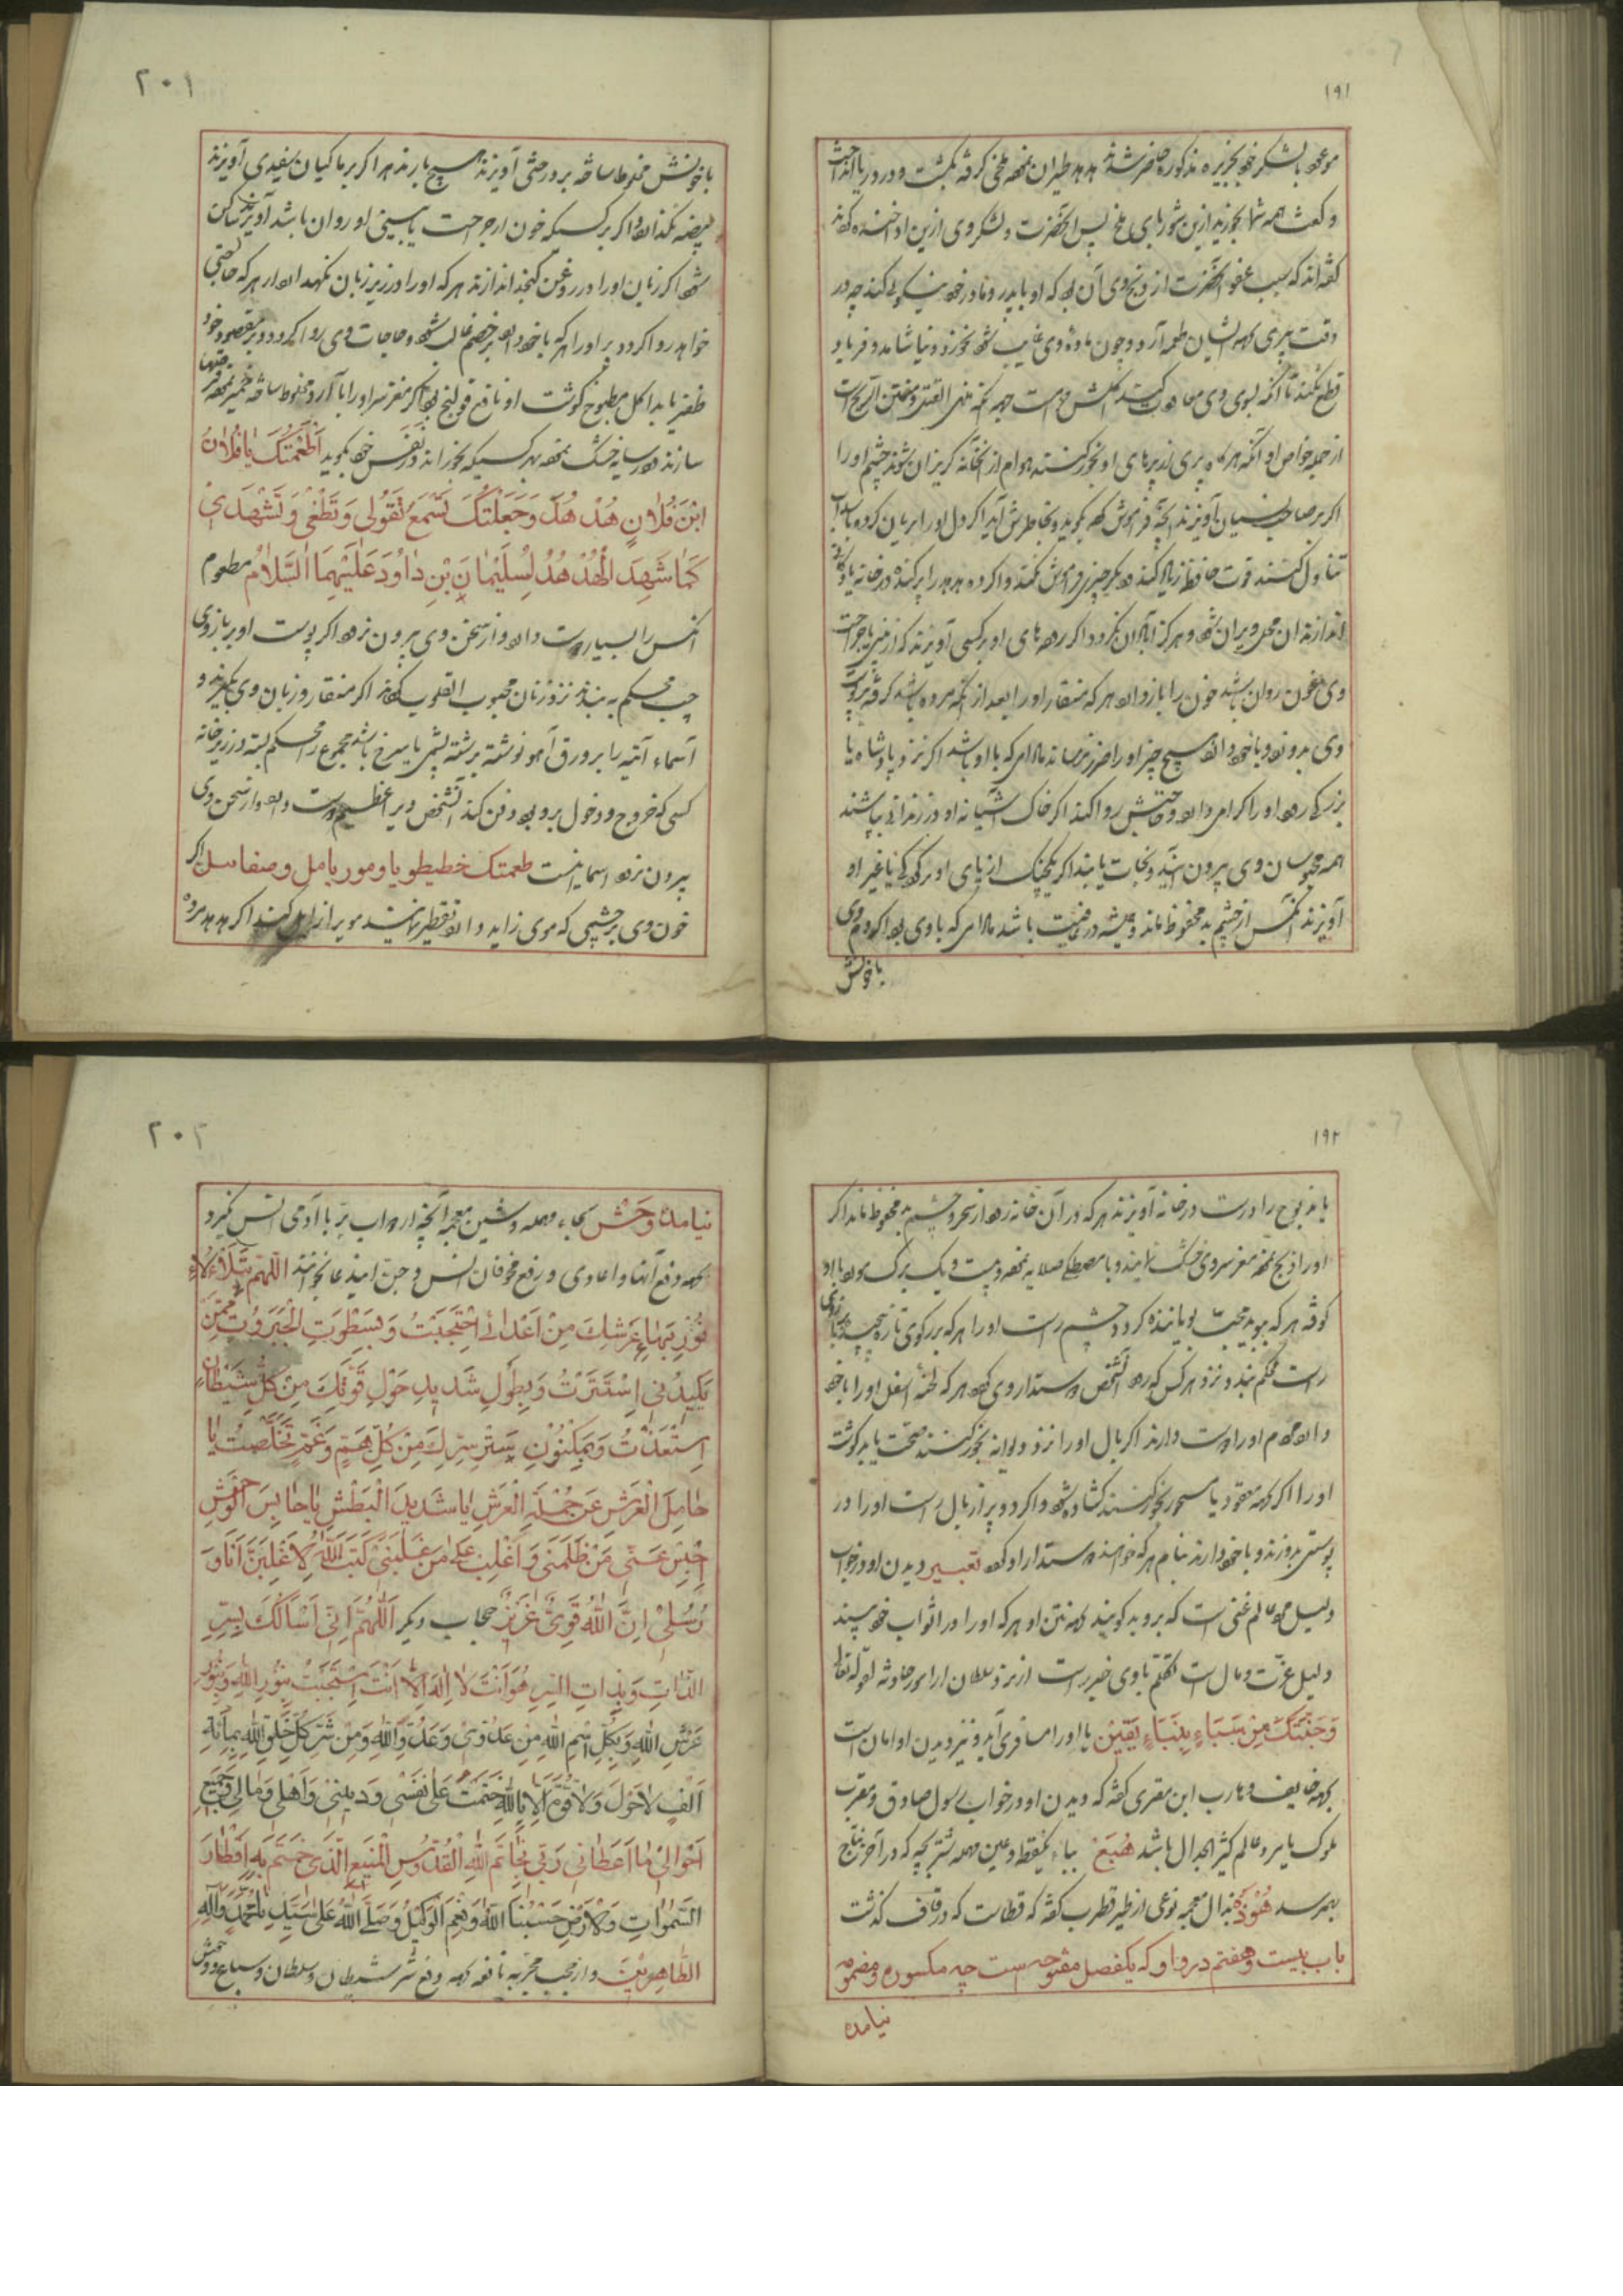 ۱۹۱
موعود با لشکر خود بجزیره مذکوره حاضر شدند هدهد طیران نموده ملخی گرفته بکشت و در دریا انداخت
و گفت همه شما بخورید ازین شوربای ملخ پس آنحضرت و لشکر وی ازین ادا خنده کردند
گفته‌اند که سبب عفو آنحضرت از ذبح وی آن بود که او با پدر و مادر خود نیکوئی کند چه در
وقت پیری بجهة ایشان طعمه آرد و چون ماده وی غایب شود نخورد و نیاشامد و فریاد
قطع نکند تا آنکه بسوی وی معاودت کند
از جمله خواص او آنکه هرگاه بپری از پرهای او بخور کنند هوام از آنخانه گریزان شوند چشم او را
اگر بر صاحب نسیان آویزند آنچه فراموش کرده بگوید و بخاطرش آید اگر دل او را بریان کرده با سداب
تناول کنند قوت حافظه زیاد کند و دیگر چیزی فراموش نکند و اگر ده هدهد را پر کنده در خانه یا دکان
اندازند آن محل ویران شود و هرگز آبادان نگردد اگر روده‌های او بر کسی آویزند که از بینی یا جراحت
وی خون روان باشد خون را باز دارد هر که منقار او را بعد از آنکه مرده باشد گرفته پوست
وی بر و با خود دارد هیچ چیز او را ضرر نرساند مادامی که با او باشد اگر نزد پادشاه یا
بزرگی رود او را گرامی دارد و حاجتش روا کند اگر خاک آشیانه او در زندانی بپاشند
همه محبوسان وی بیرون آیند و نجات یابند اگر یک چنگ از پای او بر کودکی یا غیر او
آویزند آنکس از چشم بد محفوظ ماند و همیشه در عافیت باشد مادامی که با وی بود اگر دم وی
باخونش
۲۰۱
باخونش مخلوط ساخته بر درختی آویزند هیچ بار ندهد اگر بر ماکیان سفیدی آویزند
بیضه نگذارد و اگر بر کسی که خون از جراحت یا بینی او روان باشد آویزند ساکن
شود اگر زبان او را در روغن کنجد اندازند هر که او را در زیر زبان نگهدارد از هر که حاجتی
خواهد روا گردد پر او را هر که با خود دارد بر خصم غالب شود و حاجات وی روا گردد و بر مقصود خود
ظفر یابد اکل مطبوخ گوشت او نافع قولنج بود اگر مغز سر او را با آرد مخلوط ساخته خمیر نموده قرصها
سازند و در سایه خشک نموده بهر کسی که بخوراند و در نفس خود بگوید اَطْعَمْتُکَ یا فُلانُ
ابْنَ فُلانٍ هُدْ هُدَ وَجَعَلْتُکَ تَسْمَعُ لِقَوْلی وَ تَطْغی وَتَشْهَد لی
کَما شَهِدَ الْهُدْ هُدُ لِسُلَیْمانَ بْنِ داوُدَ عَلَیْهِمَا السَّلامُ مطعوم
آنکس را بسیار دوست دارد و از سخن وی بیرون نرود اگر پوست او بر بازوی
چپ محکم به بندند نزد زنان محبوب القلوب گردند اگر منقار و زبان وی بگیرند و
اسماء آتیه را بر ورق آهو نوشته برشته پشمی یا سرخ باشد مجموع را محکم بسته در زیر خانه
کسی که خروج و دخول بر وی بود دفن کند آنشخص ویرا عظیم دوست دارد و از سخن وی
بیرون نرود اسما اینست طعمتک خطیطو یا و مور یا مل و صفا سل اگر
خون وی بر چشمی که موی زاید دارد تقطیر نمایند موی را زایل کند اگر هدهد مرده
۱۹۲
یا مذبوح را درست در خانه آویزند هر که در آن خانه رود از سحر و چشم بد محفوظ ماند اگر
او را ذبح نموده مغز سر وی خشک نمایند و با مصطکی صلایه نموده و بیست و یک برگ مورد با او
کوفته هر که ببوید محبت بویاننده گردد چشم راست او را هر که بر رکوی تازه پیچیده بر بازوی
راست محکم بندد و نزد هر کس که رود آنشخص دوستدار وی گردد هر که لحیه اسفل او را با خود
دارد مردم او را دوست دارند اگر بال او را نزد دیوانه بخور کنند صحت یابد گوشت
او را اگر بجهة معقود یا مسحور بخور کنند گشاده شود و اگر دو پر از بال راست او را در
پوستی بدوزند و با خود دارند بنام هر که خواهند دوستدار او گردد تعبیر دیدن او در خواب
دلیل مرد عالم غنی است که بروی بد گویند بجهة نتن او هر که او را در اثواب خود بیند
دلیل عزت و مال است تکلم با وی خیریست از نزد سلطان او را مر حادثه لقوله تعالی
وَجِئْتُکَ مِنْ سَبَاءٍ بِنَبَاءٍ یَقینٍ یا او را مسافری آید و نیز دیدن او امان است
بجهة خایف و هارب ابن مقری گفته که دیدن او در خواب رسول صادق و مقرب
ملوک یا مرد عالم کثیر الجدال باشد هُبَعْ بباء یکنقطه و عین مهمله شتر بچه که در آخر نتاج
بهم رسد هُوْذَه بذال معجمه نوعی از طیر قطرب گفته که قطاست که در قاف گذشت
باب بیست و هفتم در واو که یکفصل مفتوحه است چه مکسوره و مضمومه
نیامده
۲۰۲
نیامده وَحْش بحاء مهمله و شین معجمه آنچه از دواب بر با آدمی انس نگیرد
بجهة دفع آنها و اعادی و رفع مخوفان انس و جن این دعا بخوانند اللّهُمَّ بِتَلَأْلُؤِ
نُورِ بَهاءِ عَرْشِکَ مِنْ اَعْدائی اِحْتَجَبْتُ وَ بِسَطْوَتِ الْجَبَرُوتِ مِمَّنْ
یَکیدُنی اِسْتَتَرْتُ وَ بِطَوْلِ شَدیدِ حَوْلِ قُوَّتِکَ مِنْ کُلِّ شَیْطانٍ
اِسْتَعَذْتُ وَ بِمَکْنُونِ سِتْرِ سِرِّکَ مِنْ کُلِّ هَمٍّ وَ غَمٍّ تَخَلَّصْتُ یا
حامِلَ الْعَرْشِ عَنْ حَمَلَةِ الْعَرْشِ یا شَدیدَ الْبَطْشِ یا حابِسَ الْوَحْشِ
اِحْبِسْ عَنّی مَنْ ظَلَمَنی وَ اَغْلِبْ عَلی مَنْ غَلَبَنی کَتَبَ اللهُ لَاَغْلِبَنَّ اَنَا وَ
رُسُلی اِنَّ اللهَ قَوِیٌّ عَزیزٌ حجاب دیگر اَللّهُمَّ اِنّی اَسْاَلُکَ بِسِرِّ
الذّاتِ وَ بِذاتِ السِّرِّ هُوَ اَنْتَ لا اِلهَ اِلّا اَنْتَ اِحْتَجَبْتُ بِنُورِ اللهِ وَ بِنُورِ
عَرْشِ اللهِ وَ بِکُلِّ اسْمِ اللهِ مِنْ عَدُوّی وَ عَدُوِّ اللهِ وَ مِنْ شَرِّ کُلِّ خَلْقِ اللهِ بِمِائَةِ
اَلْفِ لا حَوْلَ وَلا قُوَّةَ اِلّا بِاللهِ خَتَمْتُ عَلی نَفْسی وَ دینی وَ اَهْلی وَ مالی وَ جَمیعِ
اَحْوالی ما اَعْطانی رَبّی بِخاتَمِ اللهِ الْقُدّوُسِ الْمَنیعِ الَّذی خَتَمَ بِهِ اَقْطارَ
السَّمواتِ وَ الْاَرْضِ حَسْبُنَا اللهُ وَ نِعْمَ الْوَکیلُ وَ صَلَّی اللهُ عَلی سَیِّدِنا مُحَمَّدٍ وَ آلِهِ
الطّاهِرینَ و از حجب مجربه نافعه بجهة دفع شر شیطان و سلطان و سباع و وحوش